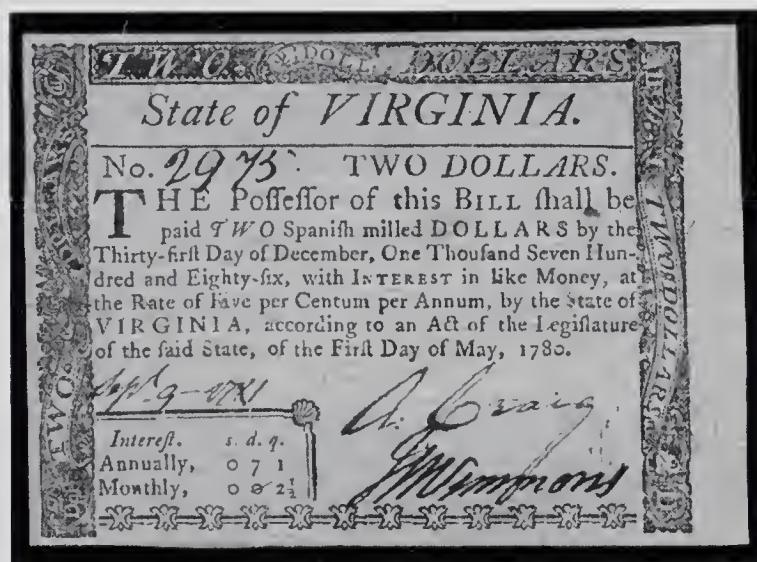 TWO (2) DOLL. DOLLARS
State of VIRGINIA.
No. 2975. TWO DOLLARS.
THE Poſſeſſor of this BILL ſhall be
paid TWO Spaniſh milled DOLLARS by the
Thirty-firſt Day of December, One Thouſand Seven Hun-
dred and Eighty-ſix, with INTEREST in like Money, at
the Rate of Five per Centum per Annum, by the State of
VIRGINIA, according to an Act of the Legiſlature
of the ſaid State, of the Firſt Day of May, 1780.
9-1781
A. Craig
Simmons
Intereſt. s. d. q.
Annually, 0 7 1
Monthly, 0 0 2½
TWO DOLLARS
TWO DOLLARS